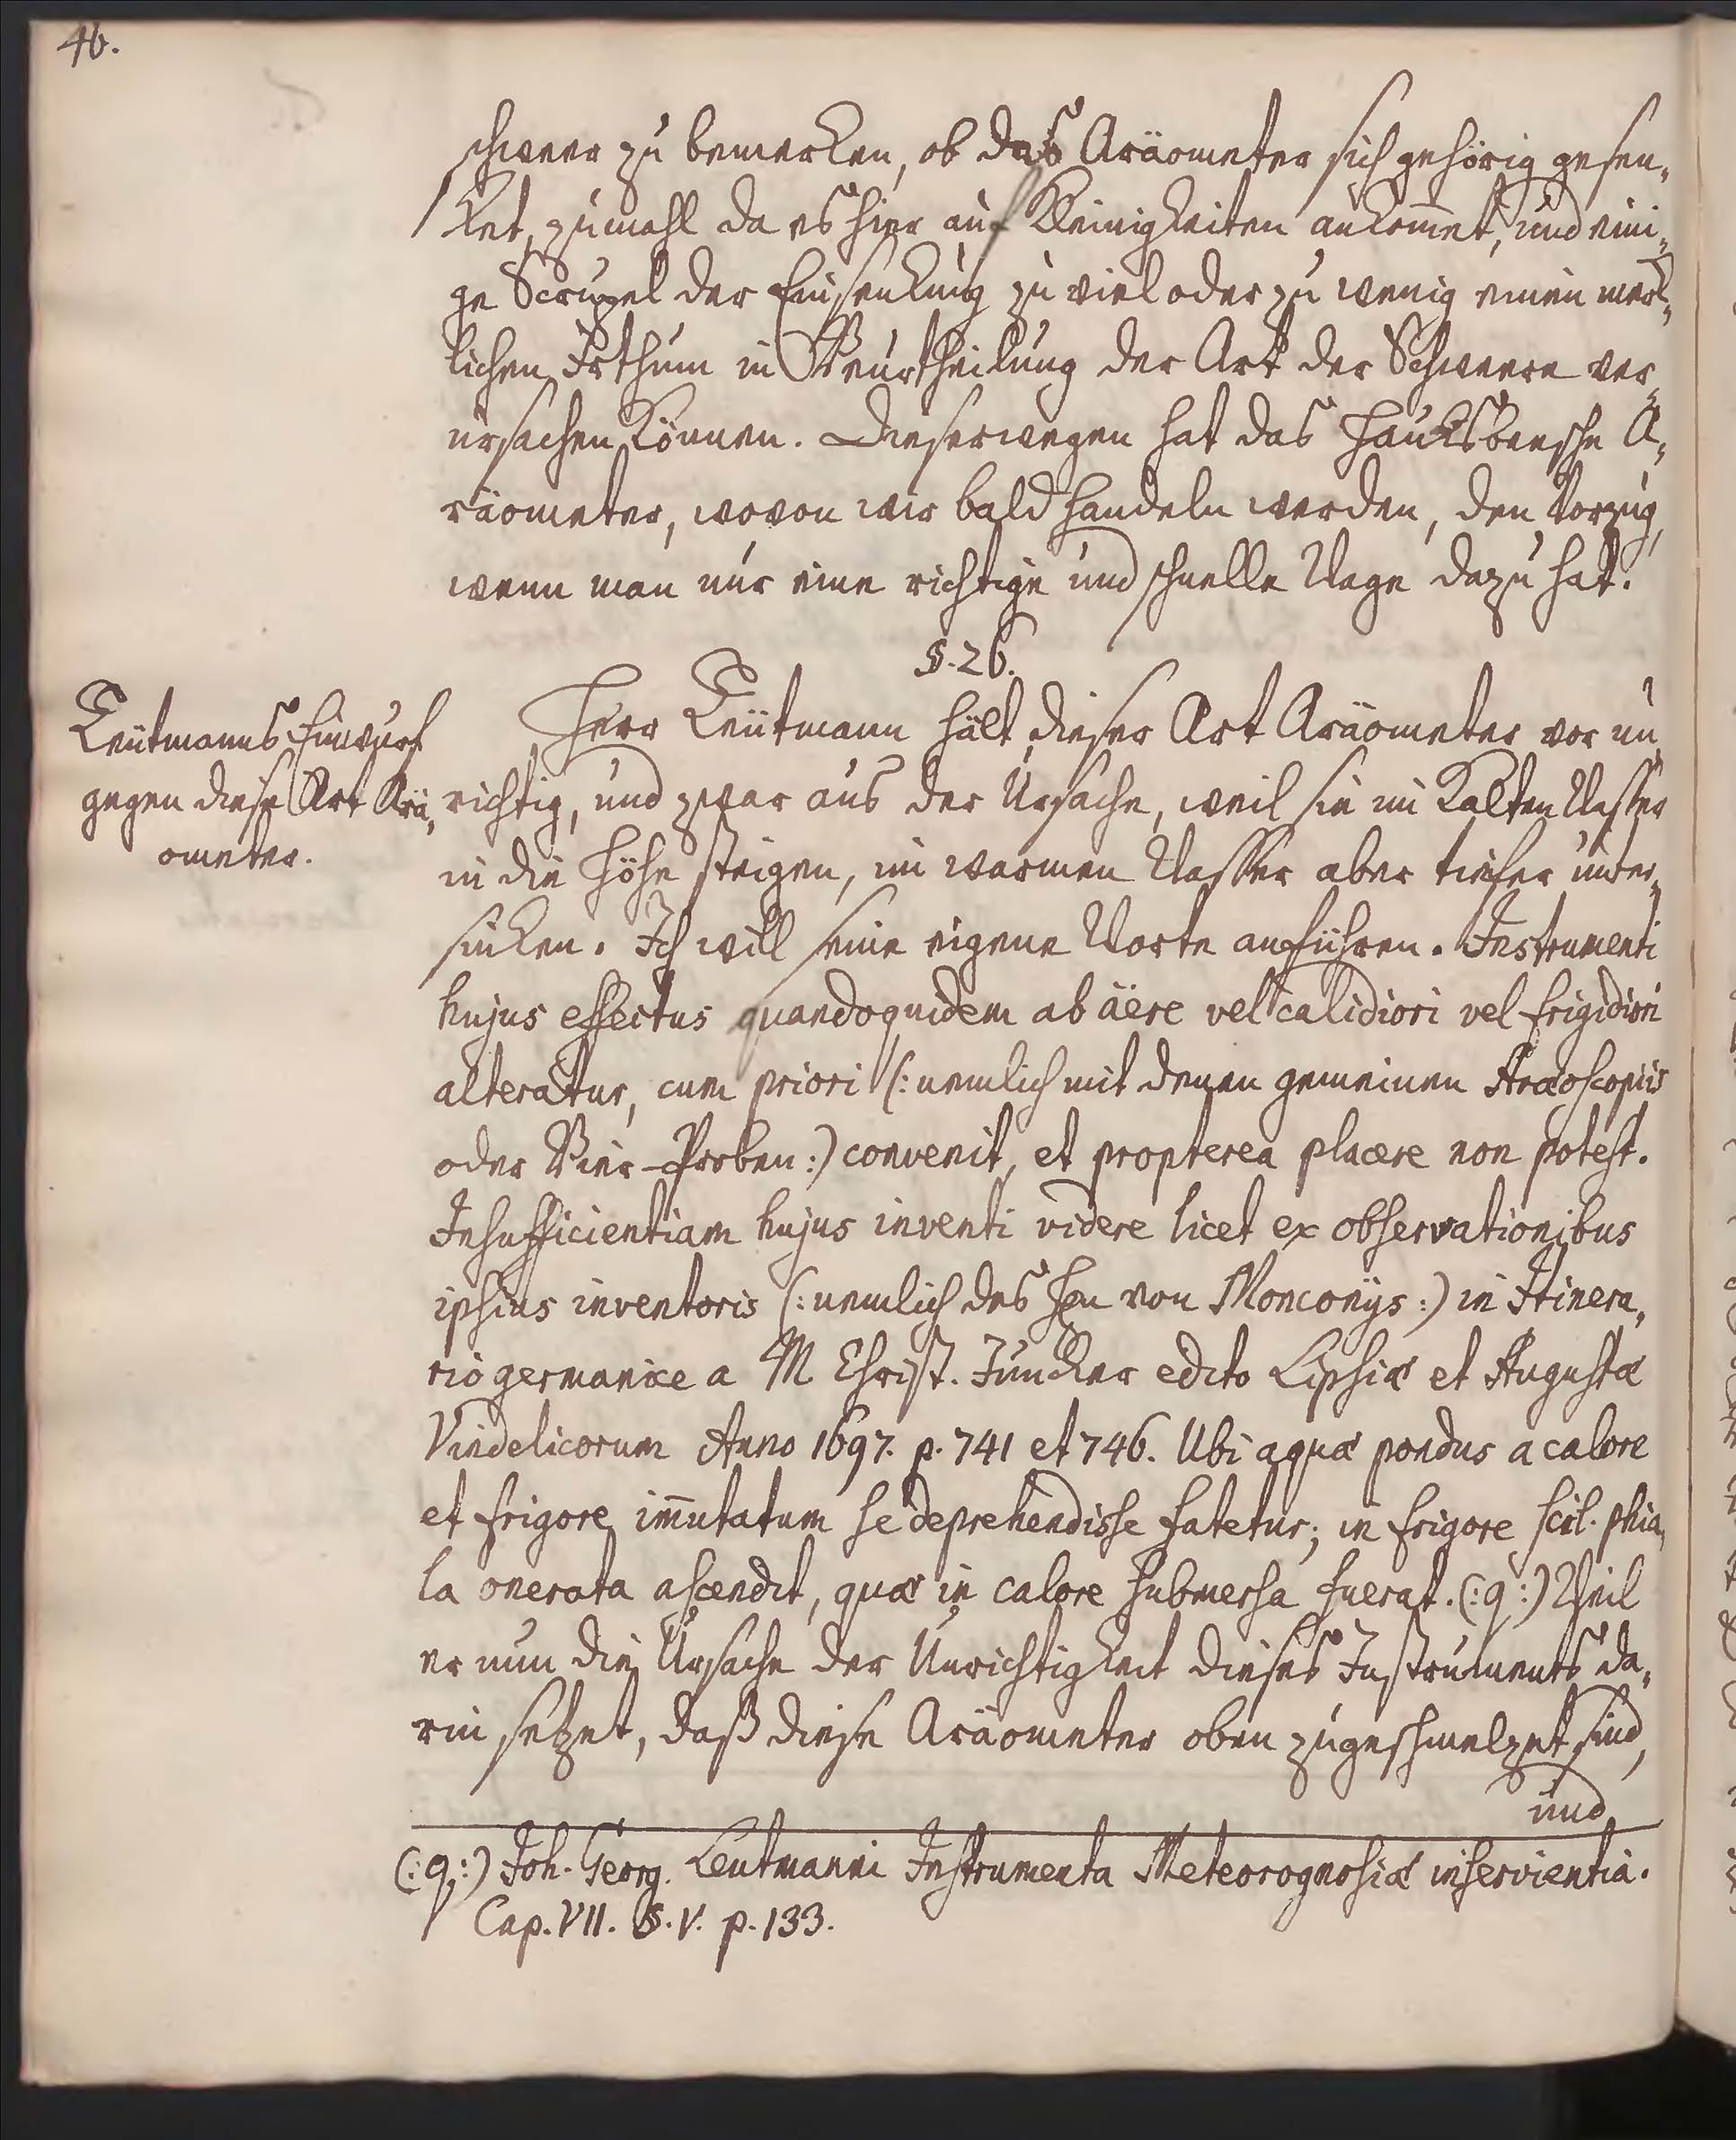 46.
schweer zu bemerken, ob das Aräometer sich gehörig gesen„
ket, zumahl da es hier auf Kleinigkeiten ankom̅et, und eini„
ge Scrupel der Einsenkung zu viel oder zu wenig einen merk„
lichen Irthum in Beurtheilung der Art der Schweere ver„
ursachen können. Dieserwegen hat das Hauksbeesche A„
räometer, wovon wir bald handeln werden, den Vorzug,
wenn man nur eine richtige und schnelle Wage dazu hat.
§. 26.
Leütmanns Einwurf
gegen diese Art Arä„
ometer.
Herr Leütmann hält dieser Art Aräometer vor un„
richtig, und zwar aus der Ursache, weil sie im kalten Wasser
in die Höhe steigen, im warmen Wasser aber tiefer unter„
sinken. Ich will seine eigene Worte anführen. Instrumenti
hujus effectus quandoquidem ab äere vel calidiori vel frigidiori
alteratur, cum priori (: nemlich mit denen gemeinen Aræoscopiis
oder Bier-Proben :) convenit, et propterea placere non potest.
Insufficientiam hujus inventi videre licet ex observationibus
ipsius inventoris (: nemlich des Hℓn von Monconÿs :) in Itinera„
rio germanice a M Christ. Juncker edito Lipsiæ et Augustæ
Vindelicorum Anno 1697. p. 741 et 746. Ubi aquæ pondus a calore
et frigore im̅utatum se deprehendisse fatetur; in frigore scil. phia„
la onerata ascendit, quæ in calore submersa fuerat. (: q :) Weil
er nun die Ursache der Unrichtigkeit dieses Instruments da„
rin setzet, daß diese Aräometer oben zugeschmelzet sind,
und
(: q :) Joh. Georg. Leutmanni Instrumenta Meteorognosiæ inservientia.
Cap. VII. §. V. p. 133.